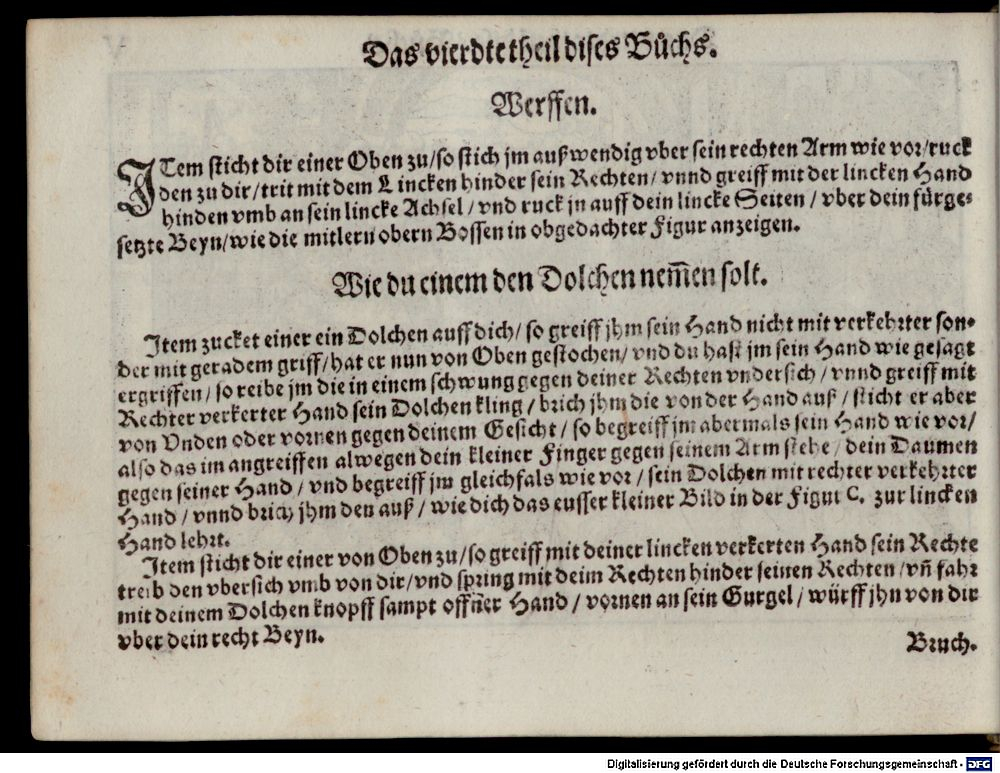 Das vierdte theil dises Bůchs.
Werffen.
ITem sticht dir einer Oben zu/so stich jm außwendig vber sein rechten Arm wie vor/ruck
den zu dir/trit mit dem Lincken hinder sein Rechten/vnnd greiff mit der lincken Hand
hinden vmb an sein lincke Achsel/vnd ruck jn auff dein lincke Seiten/vber dein fürge-
setzte Beyn/wie die mitlern obern Bossen in obgedachter Figur anzeigen.
Wie du einem den Dolchen nem̃en solt.
Item zucket einer ein Dolchen auff dich/so greiff jhm sein Hand nicht mit verkehrter son-
der mit geradem griff/hat er nun von Oben gestochen/vnd du hast jm sein Hand wie gesagt
ergriffen/so reibe jm die in einem schwung gegen deiner Rechten vndersich/vnnd greiff mit
Rechter verkerter Hand sein Dolchen kling/brich jhm die von der Hand auß/sticht er aber
von Vnden oder vornen gegen deinem Gesicht/so begreiff jm abermals sein Hand wie vor/
also das im angreiffen alwegen dein kleiner Finger gegen seinem Arm stehe/dein Daumen
gegen seiner Hand/vnd begreiff jm gleichfals wie vor/sein Dolchen mit rechter verkehrter
Hand/vnnd brich jhm den auß/wie dich das eusser kleiner Bild in der Figur C. zur lincken
Hand lehrt.
Item sticht dir einer von Oben zu/so greiff mit deiner lincken verkerten Hand sein Rechte
treib den vbersich vmb von dir/vnd spring mit deim Rechten hinder seinen Rechten/vñ fahr
mit deinem Dolchen knopff sampt offñer Hand/vornen an sein Gurgel/würff jhn von dir
vber dein recht Beyn.
Bruch.
Digitalisierung gefördert durch die Deutsche Forschungsgemeinschaft - DFG